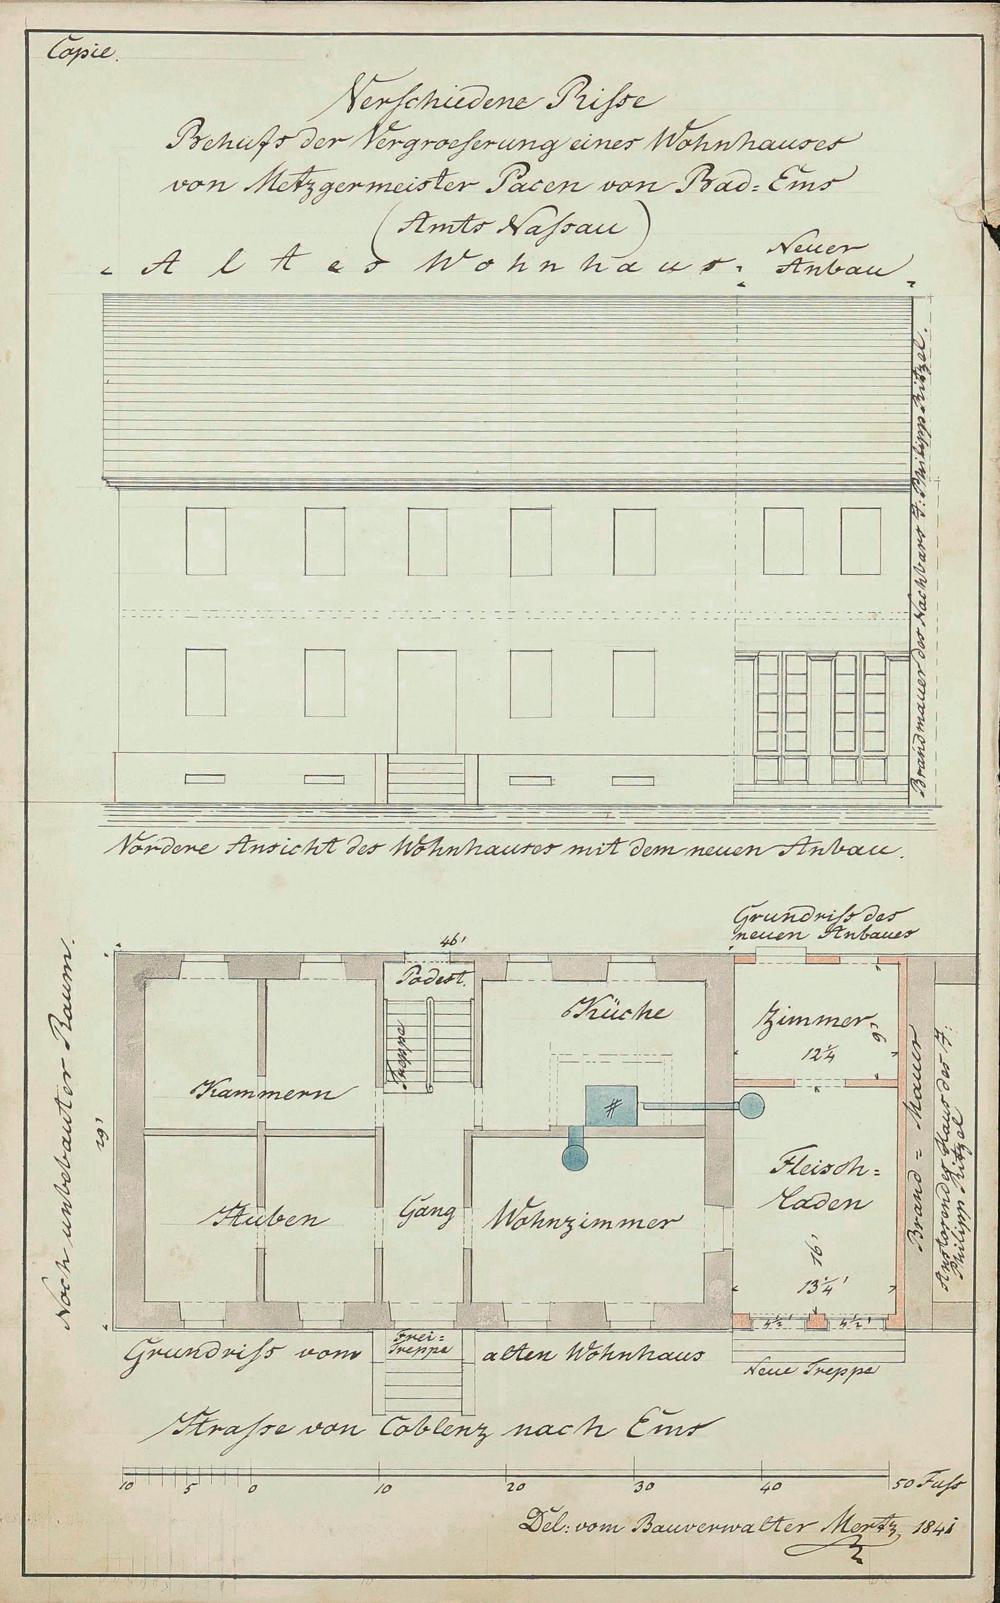 Copie.
Verschiedene Risse
Behufs der Vergroeserung eines Wohnhauses
von Metzgermeister Pacen von Bad=Ems
(Amts Nassau)
Altes Wohnhaus.
Neuer
Anbau
Brandmauer des Nachbars J: Philipp Ritzel.
Vordere Ansicht des Wohnhauses mit dem neuen Anbau.
Grundriss des
neuen Anbaues
46'
Podest.
Küche
Zimmer
9'
12¼
Treppe
Kammern
Noch unbebauter Raum.
29'
Stuben
Gang
Wohnzimmer
Fleisch=
Laden
16'
13¼'
4½'
4½'
Brand=Mauer
Haus des J:
Philipp Ritzel
Grundriss vom
Frei=
Treppe
alten Wohnhaus
Neue Treppe
Strasse von Coblenz nach Ems
10 5 0 10 20 30 40 50 Fuss
Del: vom Bauverwalter Mertz 1841